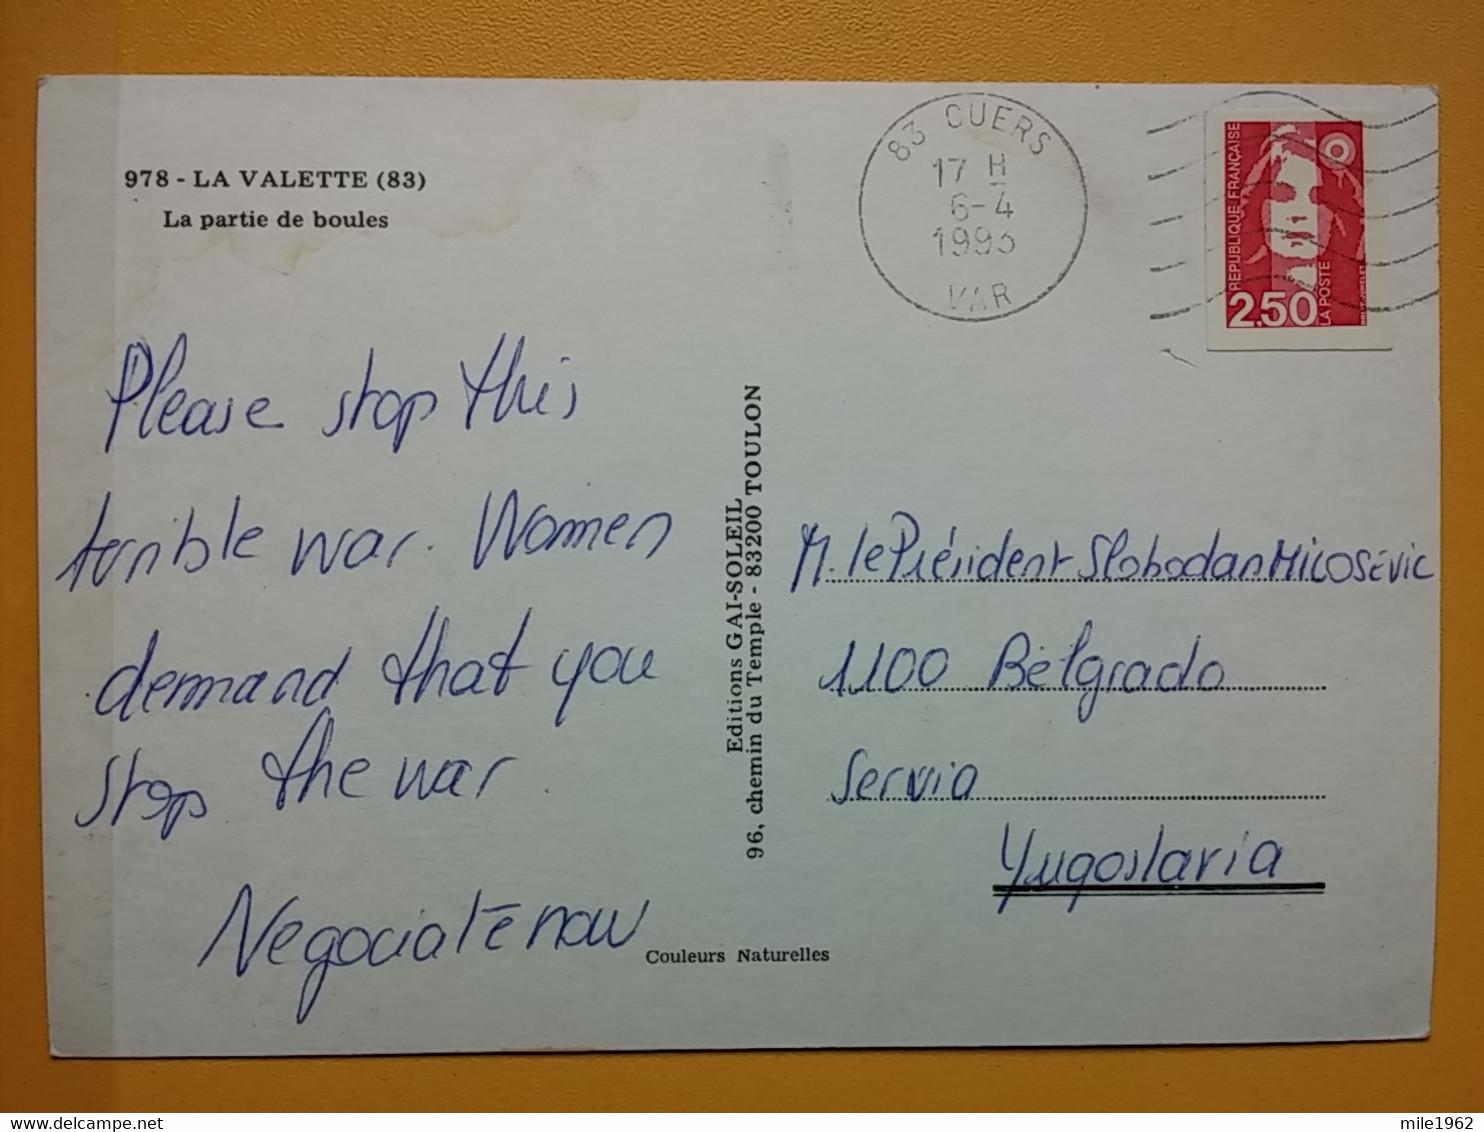 978 - LA VALETTE (83)
La partie de boules
Please stop this
terrible war. Women
demand that you
stop the war.
Negociate now
Editions GAI-SOLEIL
96, chemin du Temple - 83200 TOULON
Couleurs Naturelles
83 CUERS
17 H
6-4
1993
VAR
REPUBLIQUE FRANÇAISE
2,50
LA POSTE
M. le Président Slobodan MILOSEVIC
1100 Belgrado
Servia
Yugoslavia
mile1962